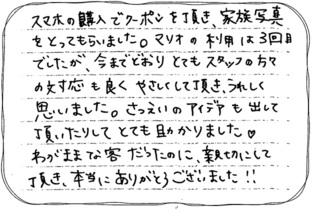 スマホの購入でクーポンを頂き、家族写真
をとってもらいました。マリオの利用は3回目
でしたが、今までどおりとてもスタッフの方々
の対応も良くやさしくして頂き、うれしく
思いました。さつえいのアイデアも出して
頂いたりしてとても助かりました♡
わがままな客だったのに、親切にして
頂き、本当にありがとうございました!!